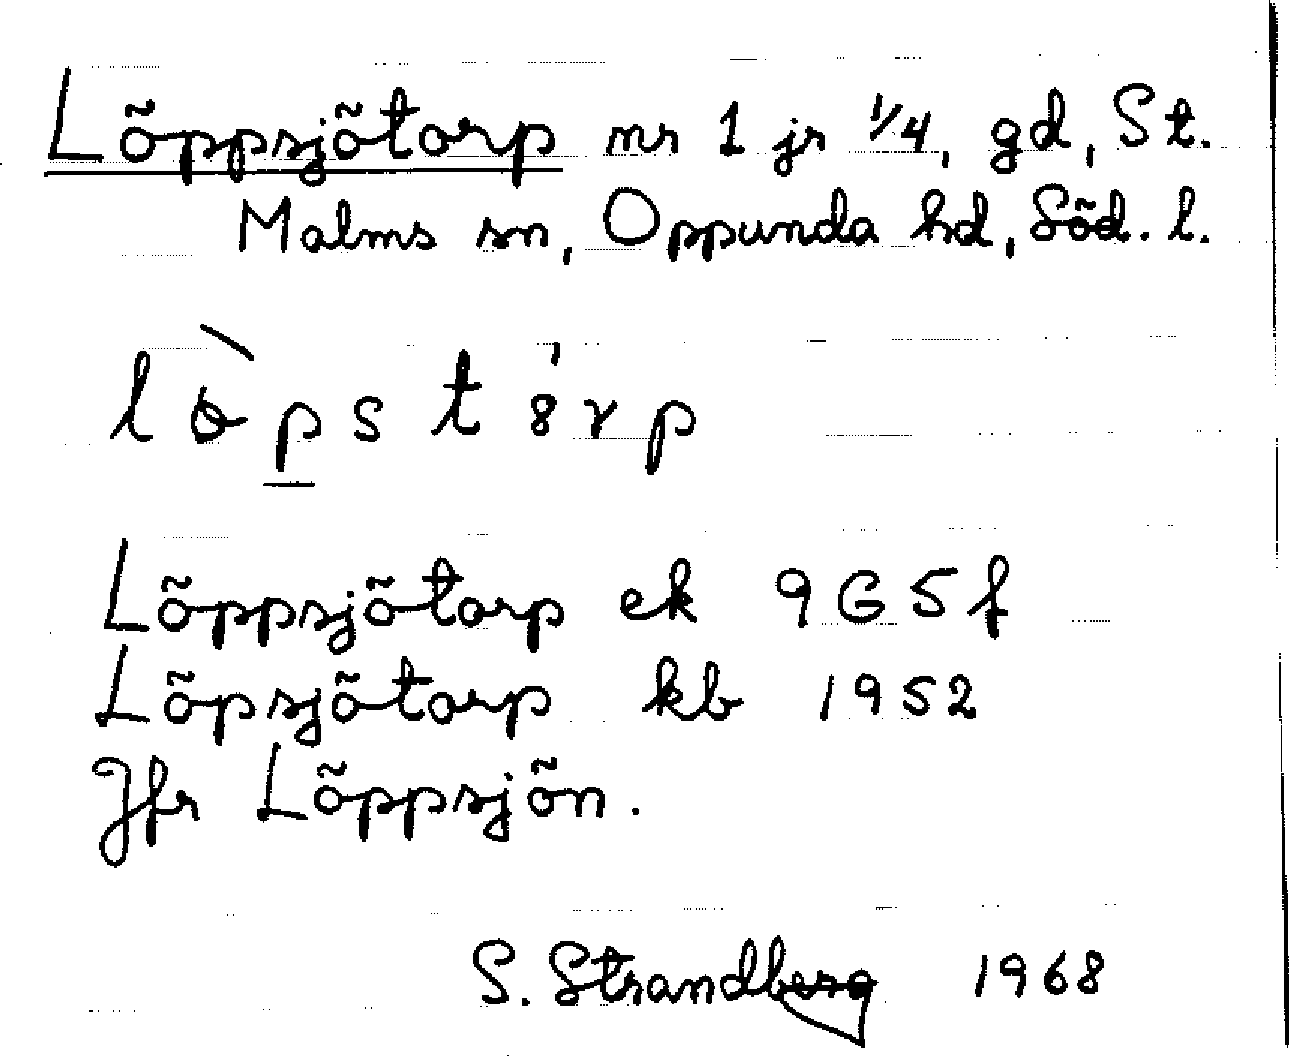 Löppsjötorp nr 1 jr 1/4, gd, St.
Malms sn, Oppunda hd, Söd. l.
Löppsjötorp ek 9G5f
Löpsjötorp kb 1952
Jfr Löppsjön.
S. Strandberg 1968